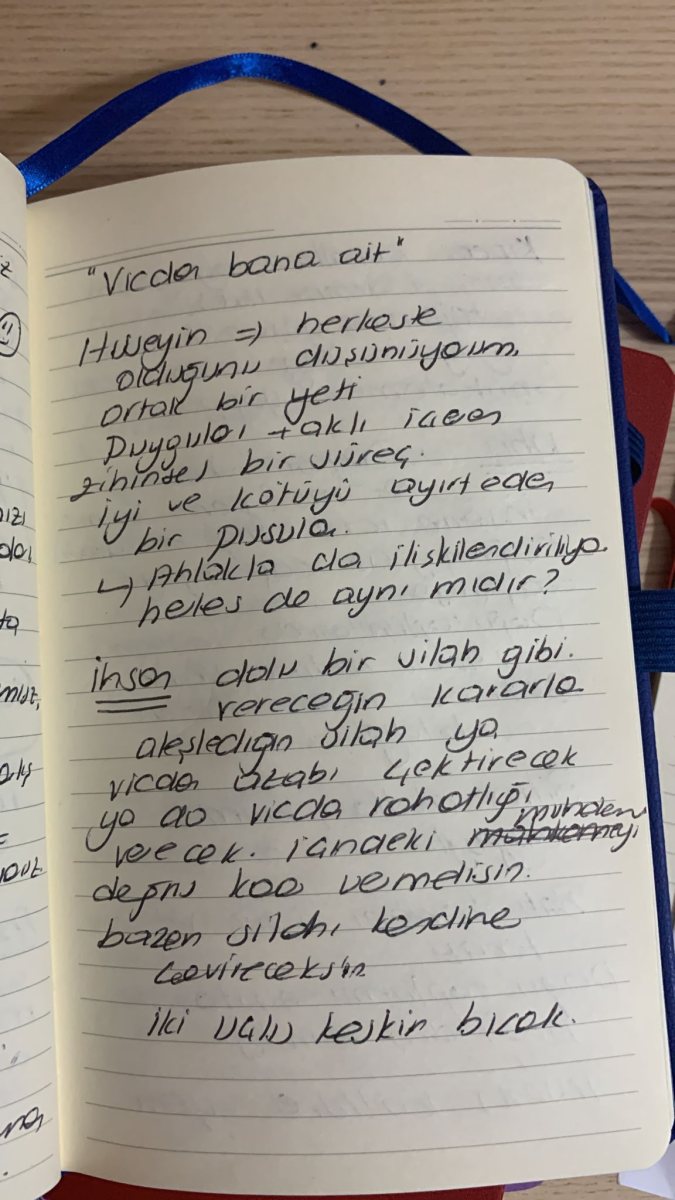 "Vicdan bana ait"
Hüseyin => herkeste
olduğunu düşünüyorum.
ortak bir yeti
Duyguları + aklı içeren
zihinsel bir süreç.
iyi ve kötüyü ayırt eden
bir pusula.
↳ Ahlakla da ilişkilendiriliyor.
herkes de aynı mıdır?
İnsan dolu bir silah gibi.
vereceğin kararla
ateşlediğin silah ya
vicdan azabı çektirecek
ya da vicdan rahatlığı
verecek. içindeki
karar vermelisin.
bazen silahı kendine
çevireceksin
iki ucu keskin bıçak.
mız
ta